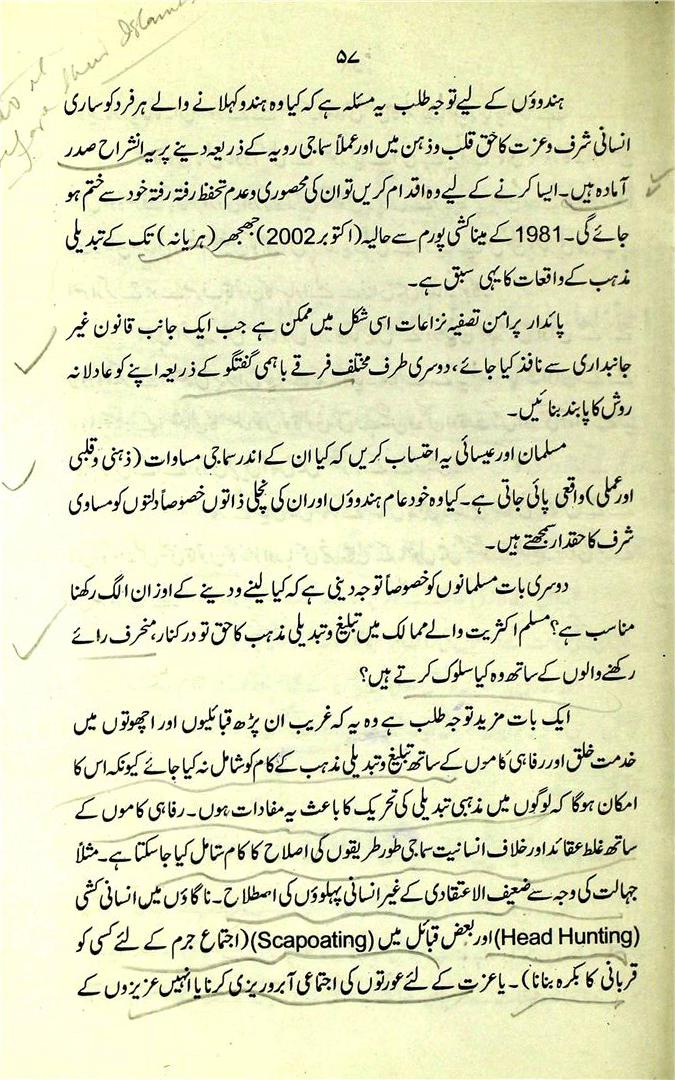 ۵۷
ہندوؤں کے لیے توجہ طلب یہ مسئلہ ہے کہ کیا وہ ہندو کہلانے والے ہر فرد کو ساری
انسانی شرف و عزت کا حق قلب و ذہن میں اور عملاً سماجی رویہ کے ذریعہ دینے پر یہ انشراح صدر
آمادہ ہیں۔ ایسا کرنے کے لیے وہ اقدام کریں تو ان کی محصوری و عدم تحفظ رفتہ رفتہ خود سے ختم ہو
جائے گی۔ 1981 کے میناکشی پورم سے حالیہ (اکتوبر 2002) جھجھر (ہریانہ) تک کے تبدیلی
مذہب کے واقعات کا یہی سبق ہے۔
پائدار پرامن تصفیہ نزاعات اسی شکل میں ممکن ہے جب ایک جانب قانون غیر
جانبداری سے نافذ کیا جائے، دوسری طرف مختلف فرقے باہمی گفتگو کے ذریعہ اپنے کو عادلانہ
روش کا پابند بنائیں۔
مسلمان اور عیسائی یہ احتساب کریں کہ کیا ان کے اندر سماجی مساوات (ذہنی و قلبی
اور عملی) واقعی پائی جاتی ہے۔ کیا وہ خود عام ہندوؤں اور ان کی نچلی ذاتوں خصوصاً دلتوں کو مساوی
شرف کا حقدار سمجھتے ہیں۔
دوسری بات مسلمانوں کو خصوصاً توجہ دینی ہے کہ کیا لینے و دینے کے اوزان الگ رکھنا
مناسب ہے؟ مسلم اکثریت والے ممالک میں تبلیغ و تبدیلی مذہب کا حق تو درکنار، منحرف رائے
رکھنے والوں کے ساتھ وہ کیا سلوک کرتے ہیں؟
ایک بات مزید توجہ طلب ہے وہ یہ کہ غریب ان پڑھ قبائلیوں اور اچھوتوں میں
خدمت خلق اور رفاہی کاموں کے ساتھ تبلیغ و تبدیلی مذہب کے کام کو شامل نہ کیا جائے کیونکہ اس کا
امکان ہوگا کہ لوگوں میں مذہبی تبدیلی کی تحریک کا باعث یہ مفادات ہوں۔ رفاہی کاموں کے
ساتھ غلط عقائد اور خلاف انسانیت سماجی طور طریقوں کی اصلاح کا کام شامل کیا جا سکتا ہے۔ مثلاً
جہالت کی وجہ سے ضعیف الاعتقادی کے غیر انسانی پہلوؤں کی اصطلاح۔ ناگاؤں میں انسانی کشی
(Head Hunting) اور بعض قبائل میں (Scapoating) (اجتماع جرم کے لئے کسی کو
قربانی کا بکرہ بنانا)۔ یا عزت کے لئے عورتوں کی اجتماعی آبروریزی کرنا یا انہیں عزیزوں کے